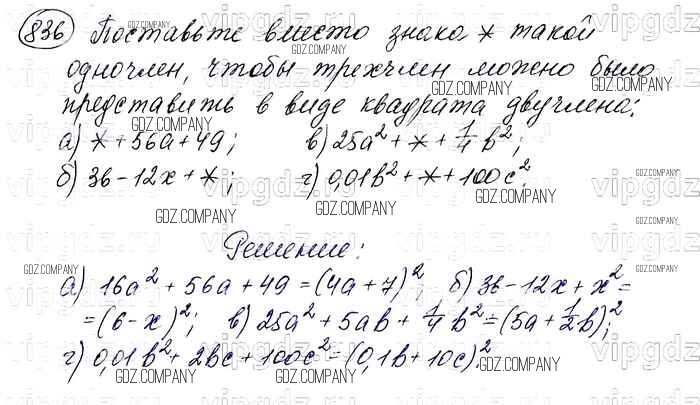 836 Поставьте вместо знака * такой
одночлен, чтобы трехчлен можно было
представить в виде квадрата двучлена:
а) * + 56a + 49; в) 25a² + * + 1/4 b²;
б) 36 - 12x + *; г) 0,01b² + * + 100c².
Решение:
а) 16a² + 56a + 49 = (4a + 7)²; б) 36 - 12x + x² =
= (6 - x)²; в) 25a² + 5ab + 1/4 b² = (5a + 1/2 b)²;
г) 0,01b² + 2bc + 100c² = (0,1b + 10c)².
GDZ.COMPANY
vipgdz